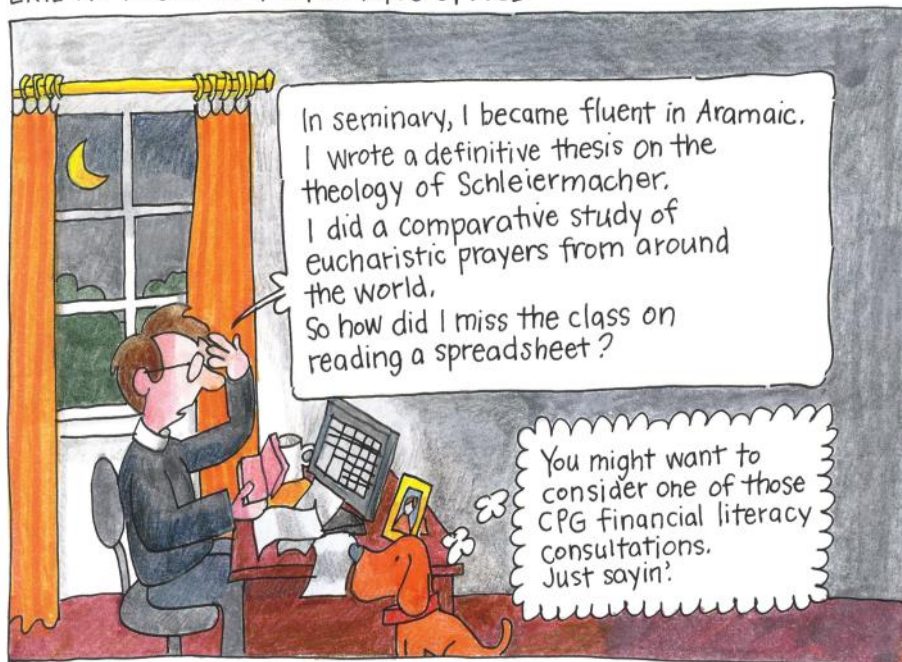 In seminary, I became fluent in Aramaic.
I wrote a definitive thesis on the
theology of Schleiermacher.
I did a comparative study of
eucharistic prayers from around
the world.
So how did I miss the class on
reading a spreadsheet?
You might want to
consider one of those
CPG financial literacy
consultations.
Just sayin'.